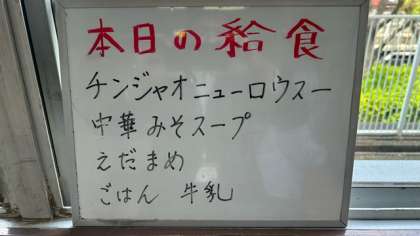 本日の給食
チンジャオニューロウスー
中華みそスープ
えだまめ
ごはん 牛乳